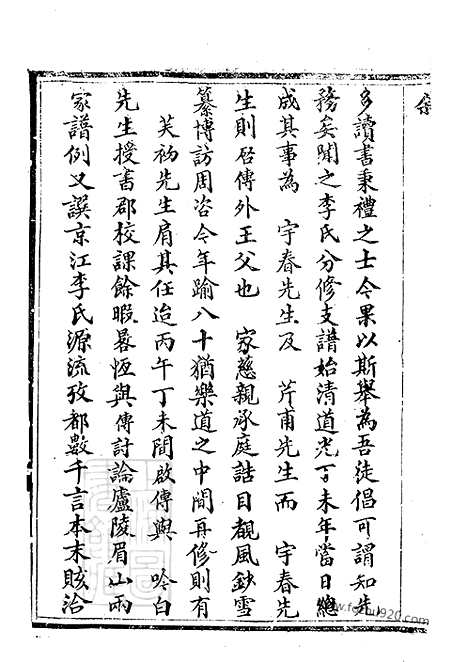 多讀書秉禮之士今果以斯舉為吾徒倡可謂知先
務矣聞之李氏分修支譜始清道光丁未年當日總
成其事為 宇春先生及 芹甫先生而 宇春先
生則啓傳外王父也 家慈親承庭誥目覩風鈔雪
纂博訪周咨今年踰八十猶樂道之中間再修則有
芙初先生肩其任迨丙午丁未間啟傳與 吟白
先生授書郡校課餘暇晷恆與傳討論廬陵眉山兩
家譜例又譔京江李氏源流攷都數千言本末賅洽